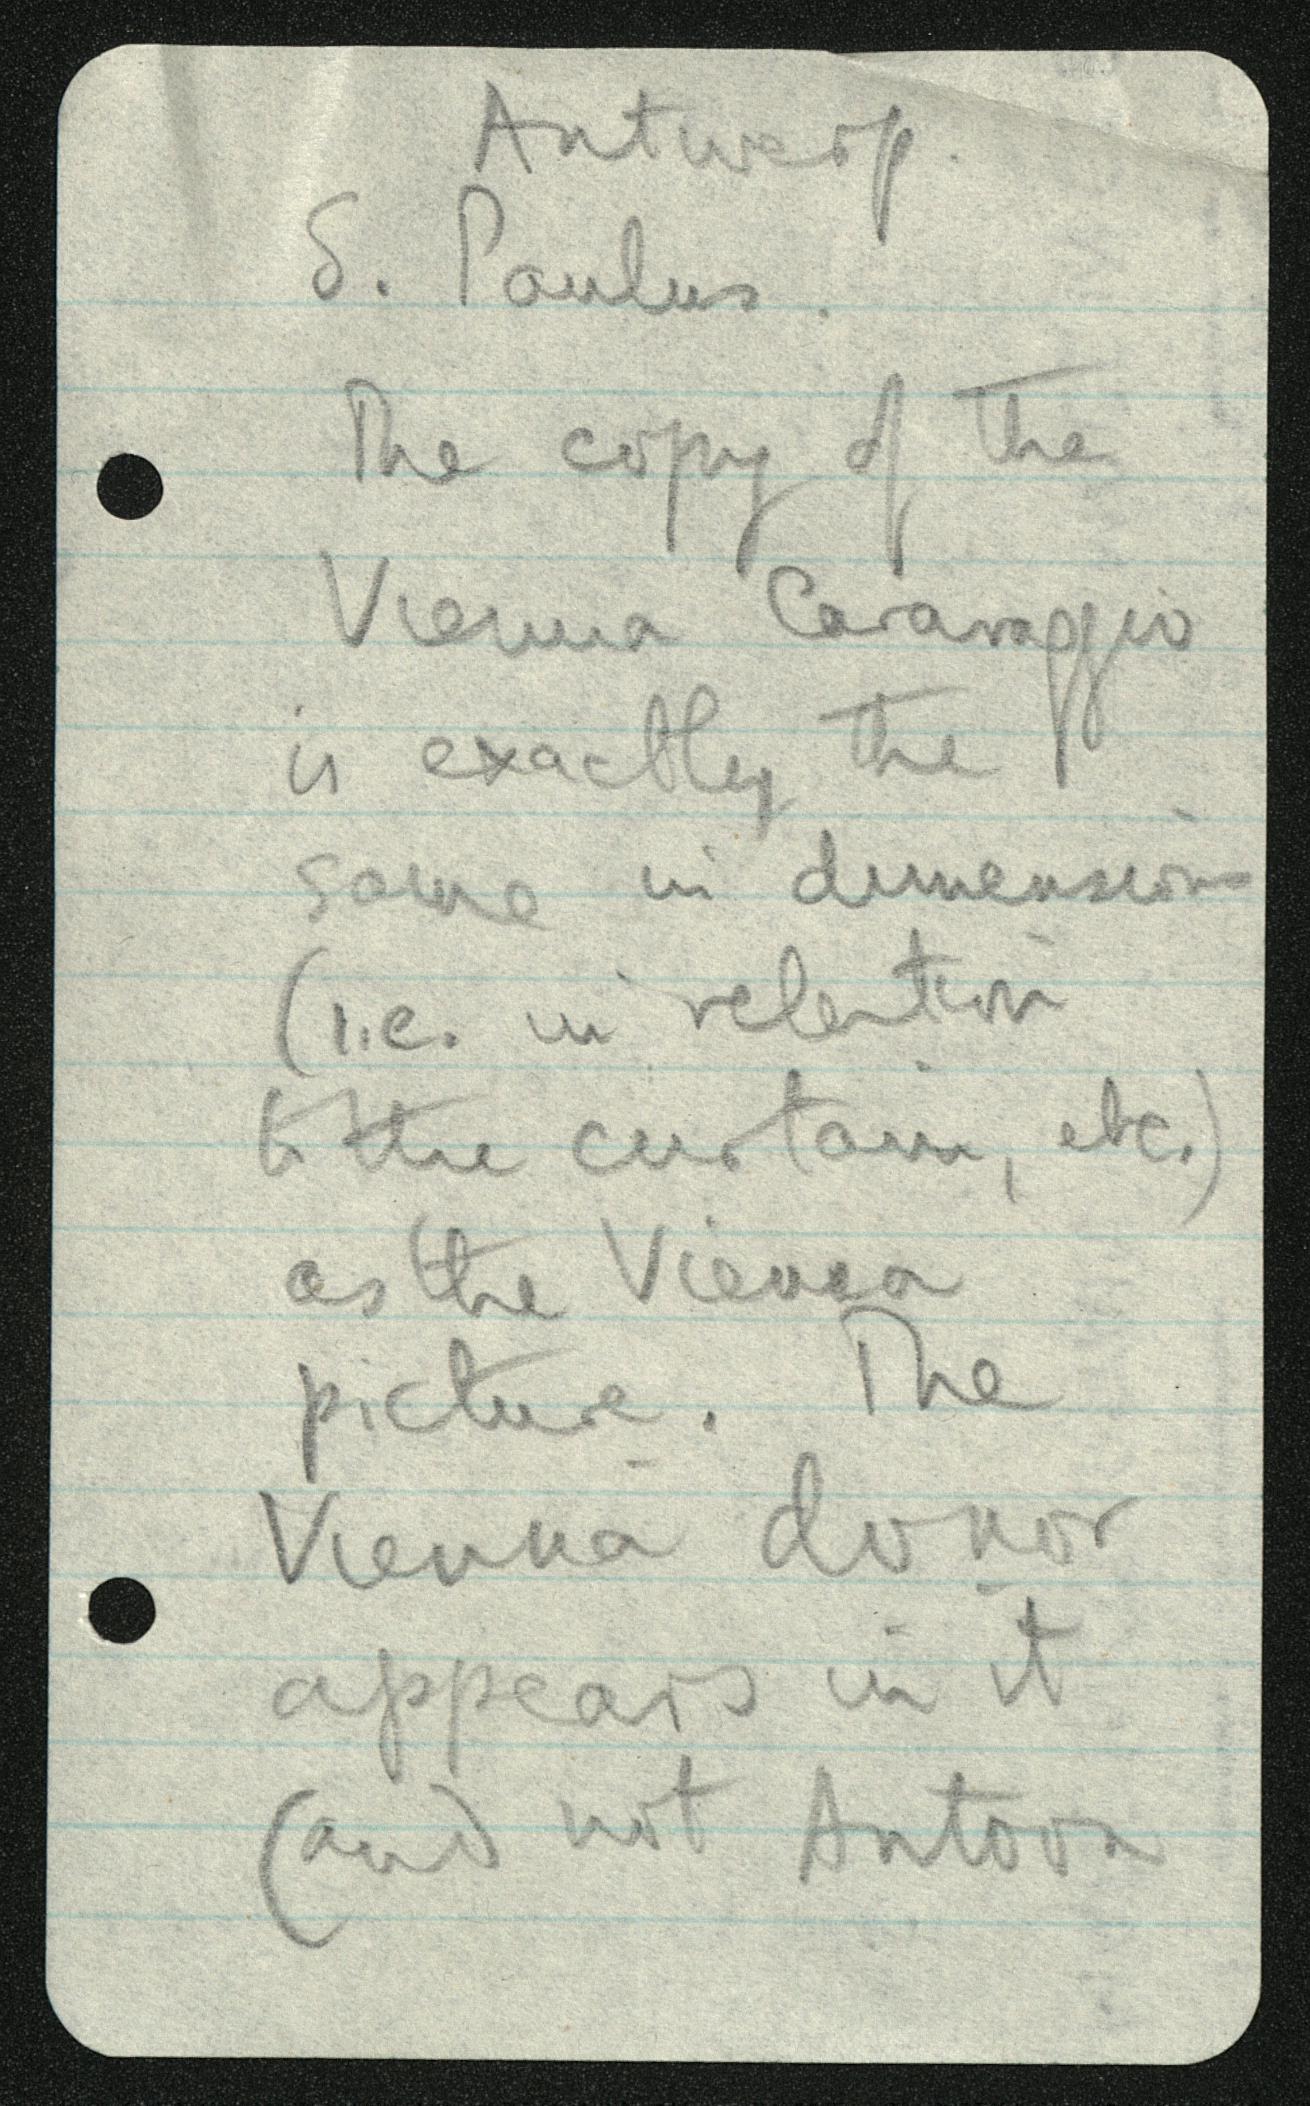 Antwerp.
S. Paulus.
The copy of the
Vienna Caravaggio
is exactly the
same in dimensions
(i.e. in relation
to the curtain, etc.)
as the Vienna
picture. The
Vienna donor
appears in it
(and not Antoon